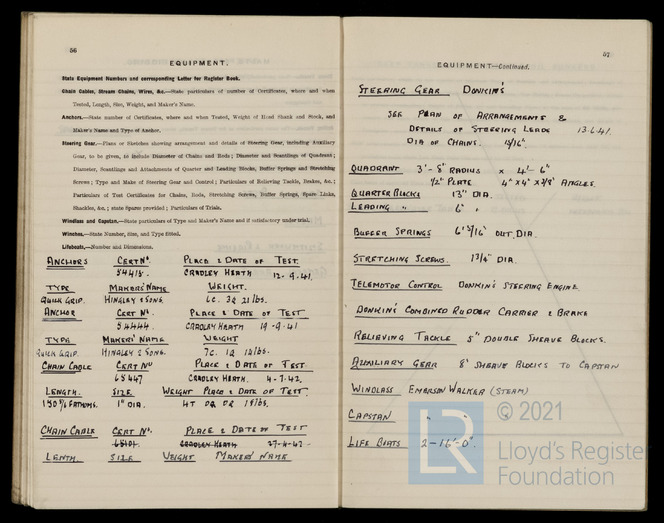 56
EQUIPMENT.
State Equipment Numbers and corresponding Letter for Register Book.
Chain Cables, Stream Chains, Wires, &c.—State particulars of number of Certificates, where and when
Tested, Length, Size, Weight, and Maker's Name.
Anchors.—State number of Certificates, where and when Tested, Weight of Head Shank and Stock, and
Maker's Name and Type of Anchor.
Steering Gear.—Plans or Sketches showing arrangement and details of Steering Gear, including Auxiliary
Gear, to be given, to include Diameter of Chains and Rods; Diameter and Scantlings of Quadrant;
Diameter, Scantlings and Attachments of Quarter and Leading Blocks, Buffer Springs and Stretching
Screws; Type and Make of Steering Gear and Control; Particulars of Relieving Tackle, Brakes, &c.;
Particulars of Test Certificates for Chains, Rods, Stretching Screws, Buffer Springs, Spare Links,
Shackles, &c.; state Spares provided; Particulars of Trials.
Windlass and Capstan.—State particulars of Type and Maker's Name and if satisfactory under trial.
Winches.—State Number, Size, and Type fitted.
Lifeboats.—Number and Dimensions.
ANCHORS CERT No. PLACE & DATE OF TEST.
54415. CRADLEY HEATH 12-9.41.
TYPE MAKERS NAME WEIGHT.
QUICK GRIP. HINGLEY & SONS. 6c. 3Q 21 lbs.
ANCHOR CERT No PLACE & DATE OF TEST
54444. CRADLEY HEATH 19-9.41
TYPE MAKERS' NAME WEIGHT
QUICK GRIP. HINGLEY & SONS. 7c. 1Q 12 lbs.
CHAIN CABLE CERT No PLACE & DATE OF TEST
65447 CRADLEY HEATH. 4-7.42.
LENGTH. SIZE WEIGHT PLACE & DATE OF TEST.
FATHOMS. 1" DIA. 4T 19 lbs.
CHAIN CABLE CERT No. PLACE & DATE OF TEST
CRADLEY HEATH 27-4-42.
LENTH. SIZE WEIGHT MAKERS' NAME
57
EQUIPMENT—Continued.
STEERING GEAR DONKIN'S
SEE PLAN OF ARRANGEMENTS &
DETAILS OF STEERING LEADS 13.6.41.
DIA OF CHAINS. 13/16".
QUADRANT 3'-8" RADIUS x 4'-6"
1/2" PLATE 4" x 4" x ANGLES.
QUARTER BLOCKS 13" DIA.
LEADING " 6" "
BUFFER SPRINGS 6 5/16" OUT. DIA.
STRETCHING SCREWS. 1 3/4" DIA.
TELEMOTOR CONTROL DONKIN'S STEERING ENGINE
DONKIN'S COMBINED RUDDER CARRIER & BRAKE
RELIEVING TACKLE 5" DOUBLE SHEAVE BLOCKS.
AUXILIARY GEAR 8" SHEAVE BLOCKS TO CAPSTAN
WINDLASS EMERSON WALKER (STEAM)
CAPSTAN " " "
LIFE BOATS 2-16'-0".
© 2021
LR
Lloyd's Register
Foundation